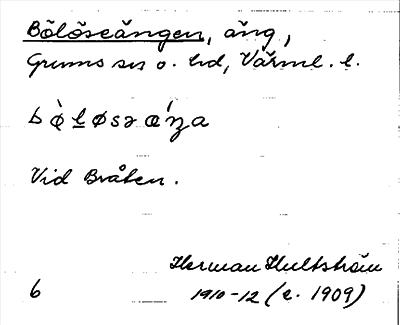 Bölöseängen, äng,
Grums sn o. hd, Värml. l.
bø̀løsəæ´ŋa
Vid Bråten.
Herman Hultström
6 1910-12 (c. 1909)